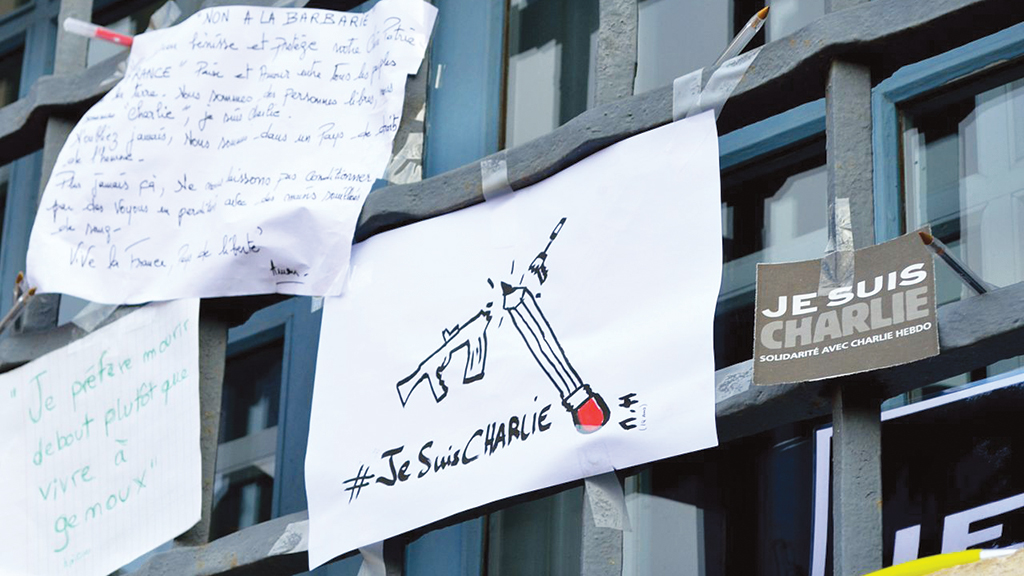 "NON A LA BARBARIE
bénisse et protège notre
FRANCE" Paix et Amour entre tous les peuples
de la terre. Nous sommes des personnes libres, nous
sommes "Charlie", je suis charlie.
N'oubliez jamais, Nous sommes dans un Pays de droit
de l'homme -
Plus jamais ça, Ne nous laissons pas conditionner
par des voyous en
de sang -
Vive la France, de liberté"
"Je préfère mourir
debout plutôt que
vivre à
genoux"
#JeSuisCHARLIE
JE SUIS
CHARLIE
SOLIDARITÉ AVEC CHARLIE HEBDO
JE